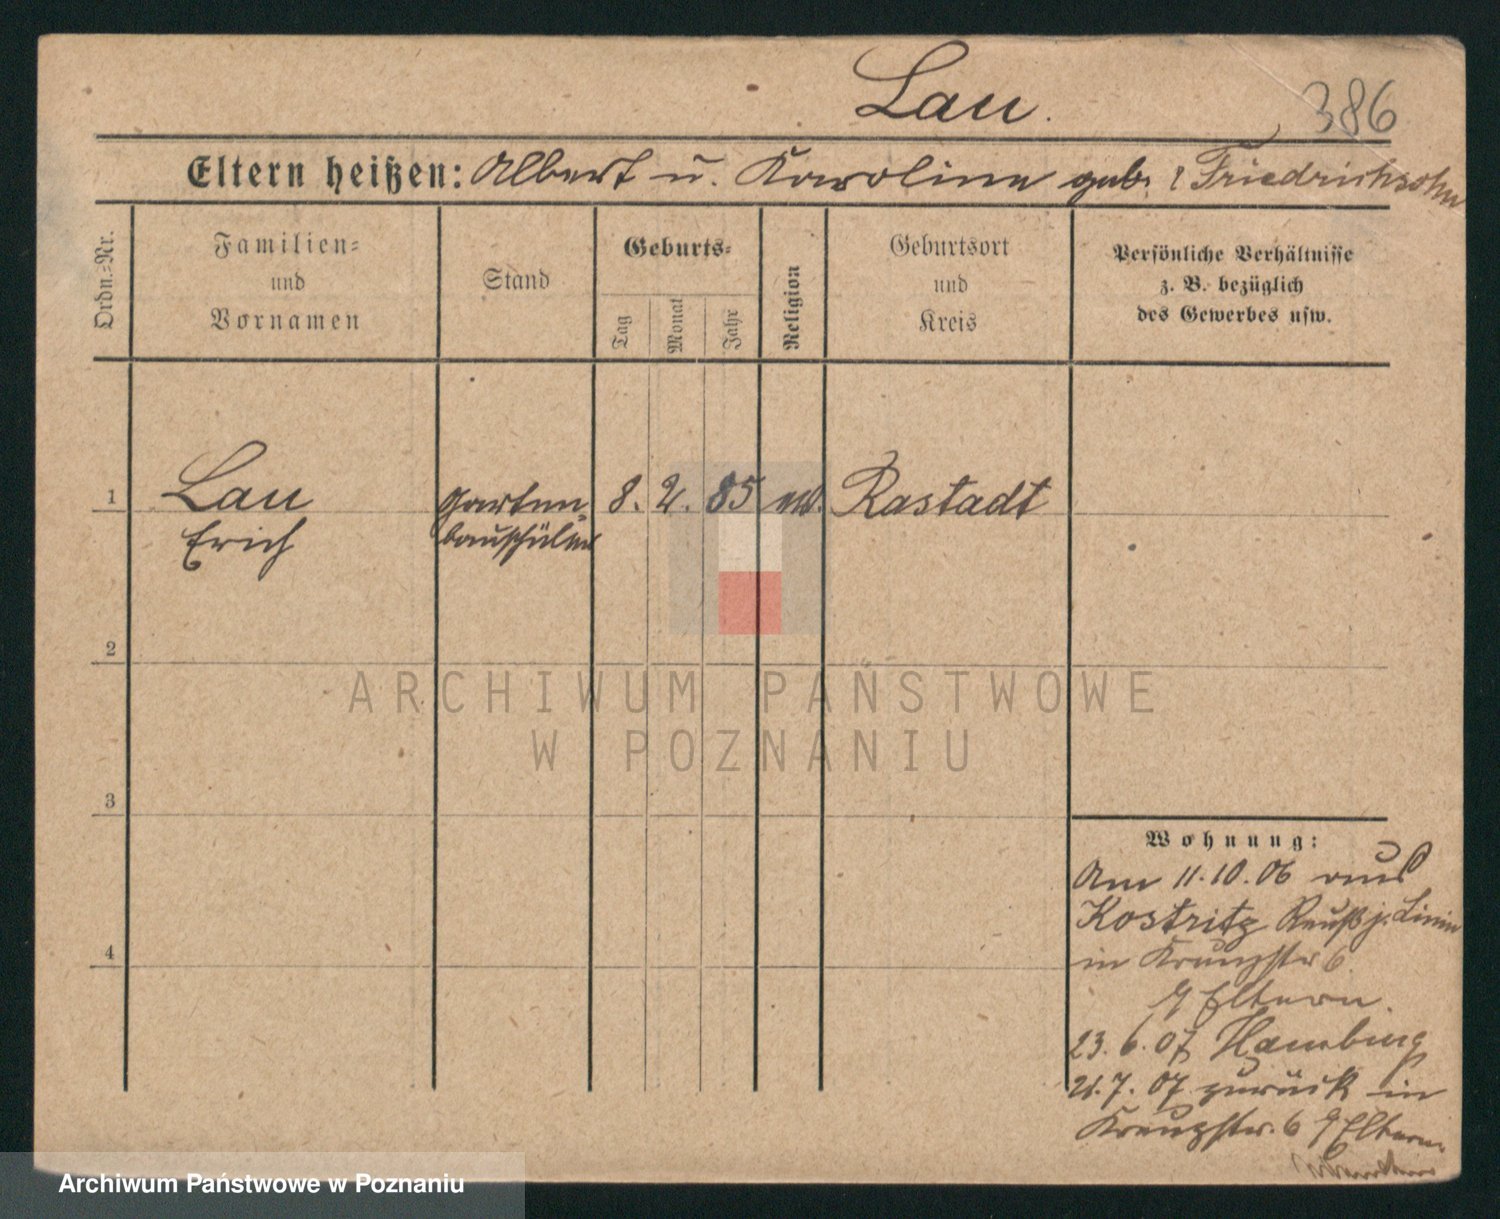 Lau.
386
Eltern heißen: Albert u. Karoline geb. Friedrichsohn
Ordn.=Nr.
Familien=
und
Vornamen
Stand
Geburts=
Tag
Monat
Jahr
Religion
Geburtsort
und
Kreis
Persönliche Verhältnisse
z. B. bezüglich
des Gewerbes usw.
1 Lau Garten 8. 2. 85 Rastadt
Erich bauschüler
2
3
4
Wohnung:
Am 11.10.06 aus
Kostritz Reuß j. Linie
in Kreuzstr 6
Eltern.
23.6.07 Hamburg
21.7.07 zurück in
Kreuzstr. 6 Eltern
ARCHIWUM PAŃSTWOWE
W POZNANIU
Archiwum Państwowe w Poznaniu